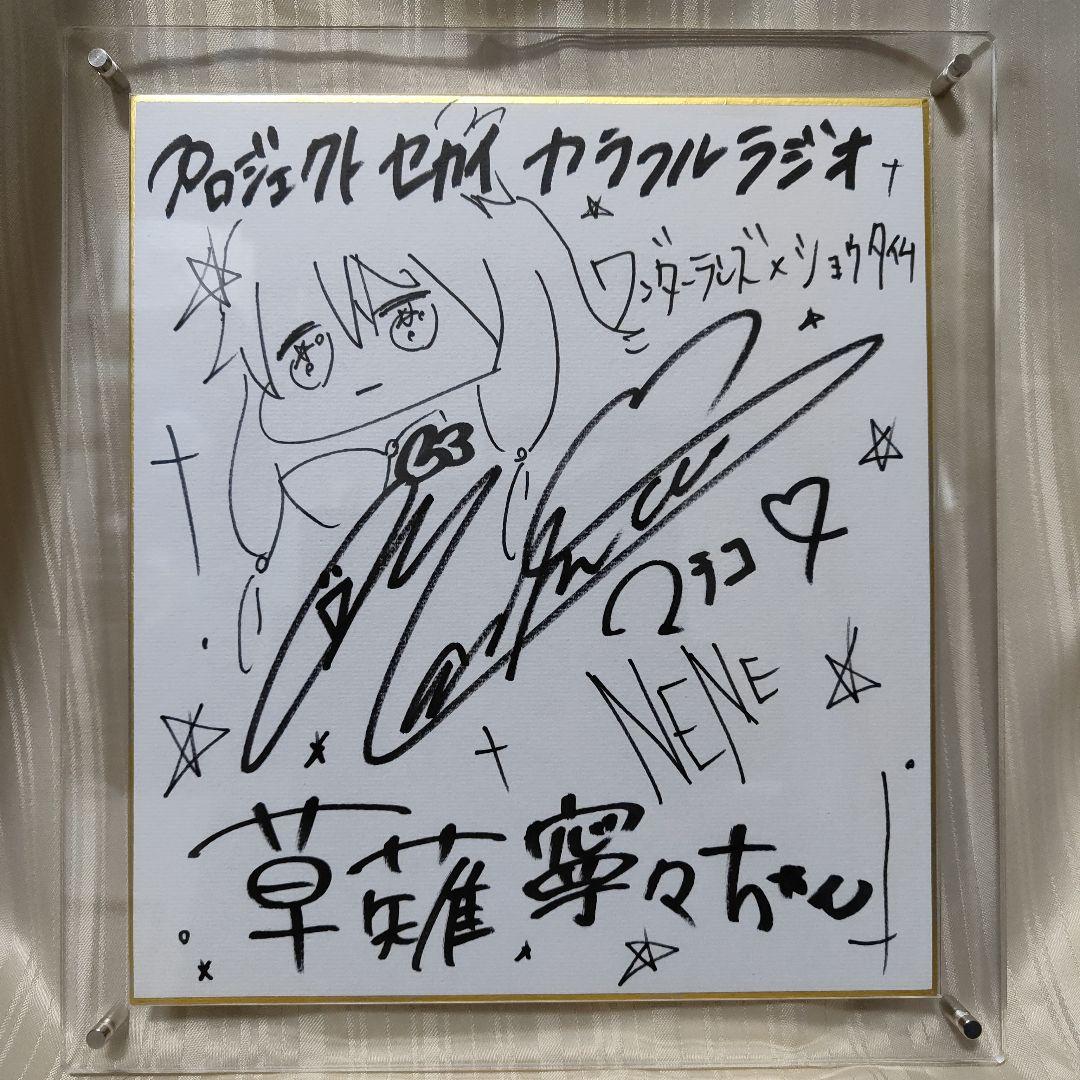 プロジェクト セカイ カラフル ラジオ
ワンダーランズ×ショウタイム
NENE
草薙 寧々ちゃん